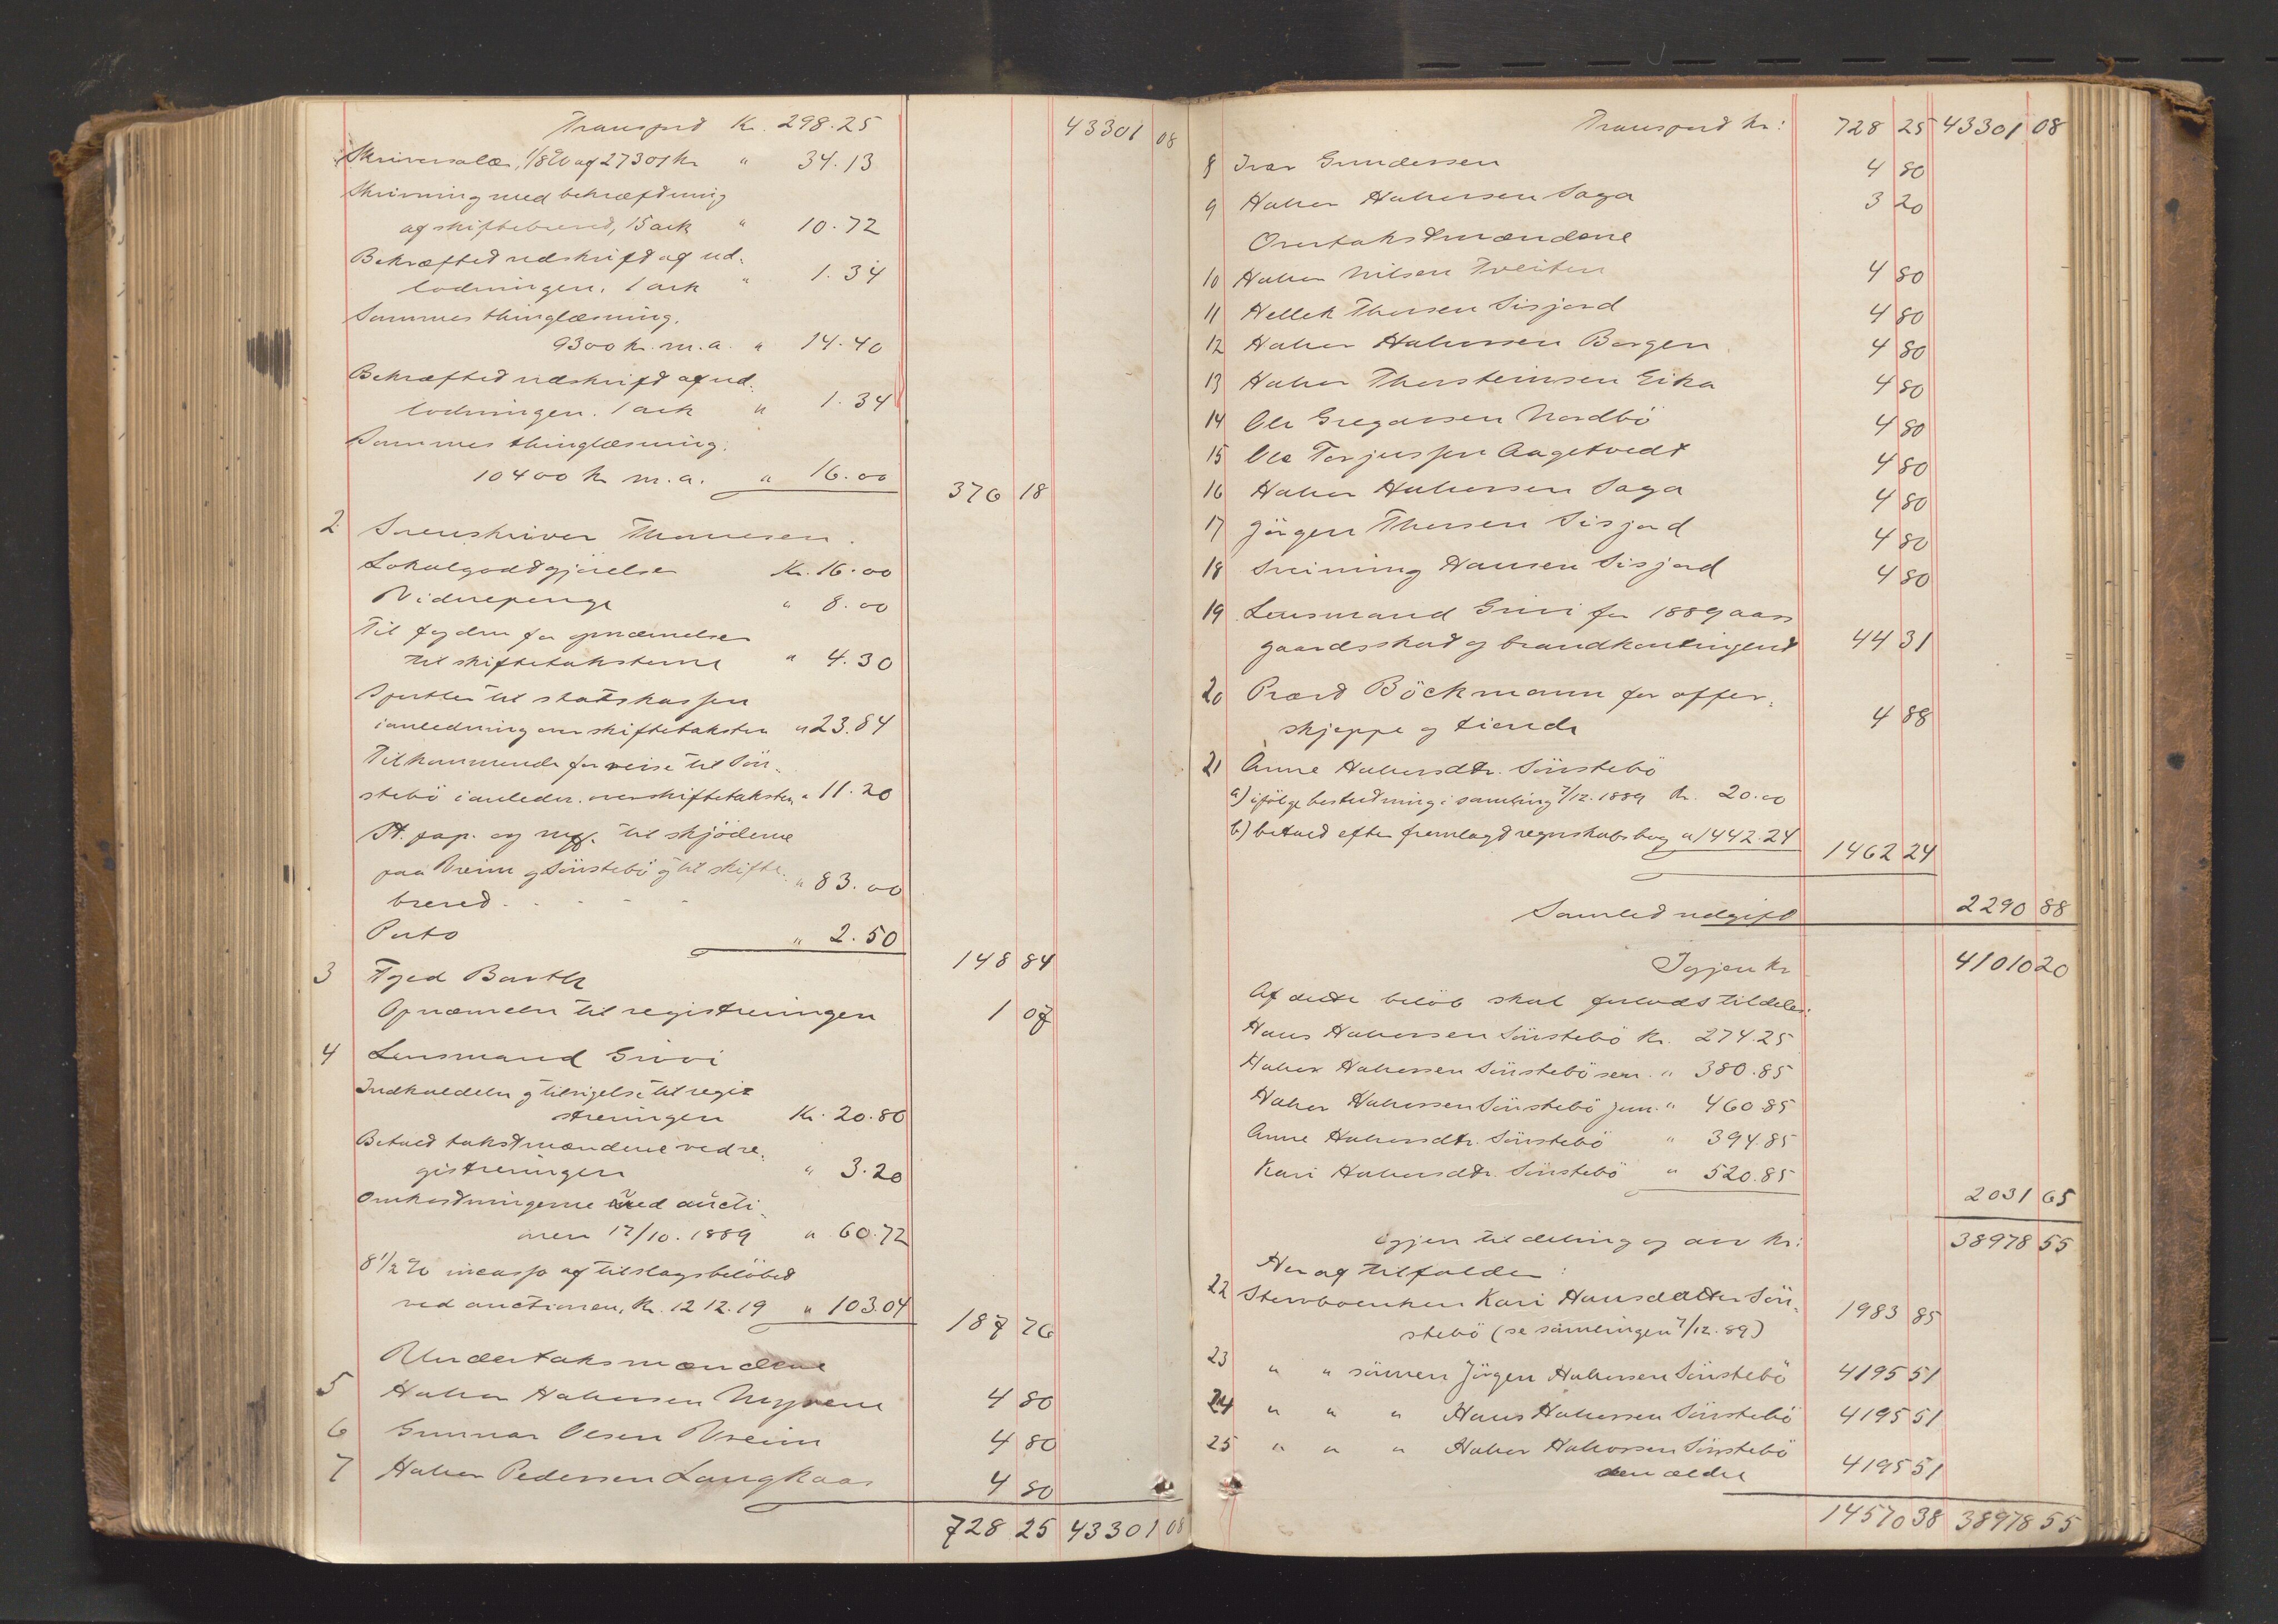 Transport Kr. 298.25 43301 08
Skriversalær, 1/8 % af 27301 kr " 34.13
Skrivning med bekræftning
af skiftebrevet, 15 ark " 10.72
Bekræftet udskrift af ud-
lodningen. 1 ark " 1.34
Sammes thinglæsning.
9300 kr. m.a. " 14.40
Bekræftet udskrift af ud-
lodningen. 1 ark " 1.34
Sammes thinglæsning.
10400 kr m.a. " 16.00 376 18
2 Sorenskriver Thomesen.
Lokalgodtgjörelse Kr. 16.00
Vidnepenge " 8.00
Til fogden for opnævnelse
til skiftetaksterne " 4.30
Sportler til statskassen
i anledning overskiftetaksten " 23.84
Tilkommende for reise til Sön-
stebö i anledn. overskiftetaksten " 11.20
St. pap. og til skjöderne
paa Vreim og Sönstebö og til skifte-
brevet " 83.00
Porto " 2.50 148 84
3 Foged Barth
Opnævnelse til registreringen 1 07
4 Lensmand Grivi
Indkaldelse og tilsigelse til regi-
streringen Kr. 20.80
Betalt takstmændene ved re-
gistreringen " 3.20
Omkostningerne ved aucti-
onen 17/10. 1889 " 60.72
8 1/2 % incasso af tilslagsbelöbet
ved auctionen, Kr. 1212.19 " 103.04 187 76
Undertaksmændene
5 Halvor Halvorsen Nyrene 4 80
6 Gunnar Olsen Vreim 4 80
7 Halvor Pedersen Langkaas 4 80
728 25 43301 08
Transport kr: 728 25 43301 08
8 Ivar Gundersen 4 80
9 Halvor Halvorsen Saga 3 20
Overtakstmændene
10 Halvor Nilsen Tveiten 4 80
11 Hellek Thorsen Sisjord 4 80
12 Halvor Halvorsen Bergen 4 80
13 Halvor Thorsteinsen Eika 4 80
14 Ole Gregarsen Nordbö 4 80
15 Ole Torjussen Aagetvedt 4 80
16 Halvor Halvorsen Saga 4 80
17 Jörgen Thorsen Sisjord 4 80
18 Sveinung Hansen Sisjord 4 80
19 Lensmand Grivi for 1889 aars
gaardsskat og brandkontingent 44 31
20 Provst Böckmann for offer,
skjeppe og tiende 4 88
21 Anne Halvorsdtr. Sönstebö
a) ifölge bestemning i samling 7/12. 1889 Kr. 20.00
b) betalt efter fremlagt regnskabsbog " 1442.24 1462 24
Samlet udgift 2290 88
Igjen kr 41010 20
Af dette belöb skal forlods tildeles:
Hans Halvorsen Sönstebö kr. 274.25
Halvor Halvorsen Sönstebö sen. " 380.85
Halvor Halvorsen Sönstebö jun. " 460.85
Anne Halvorsdtr. Sönstebö " 394.85
Kari Halvorsdtr. Sönstebö " 520.85
2031 65
igjen til deling og arv kr: 38978 55
Heraf tilfalder:
22 Stervboenken Kari Hansdatter Sön-
stebö (se samlingen 7/12. 89) 1983 85
23 " " sönnen Jörgen Halvorsen Sönstebö 4195 51
24 " " " Hans Halvorsen Sönstebö 4195 51
25 " " " Halvor Halvorsen Sönstebö
den ældre 4195 51
14570 38 38978 55